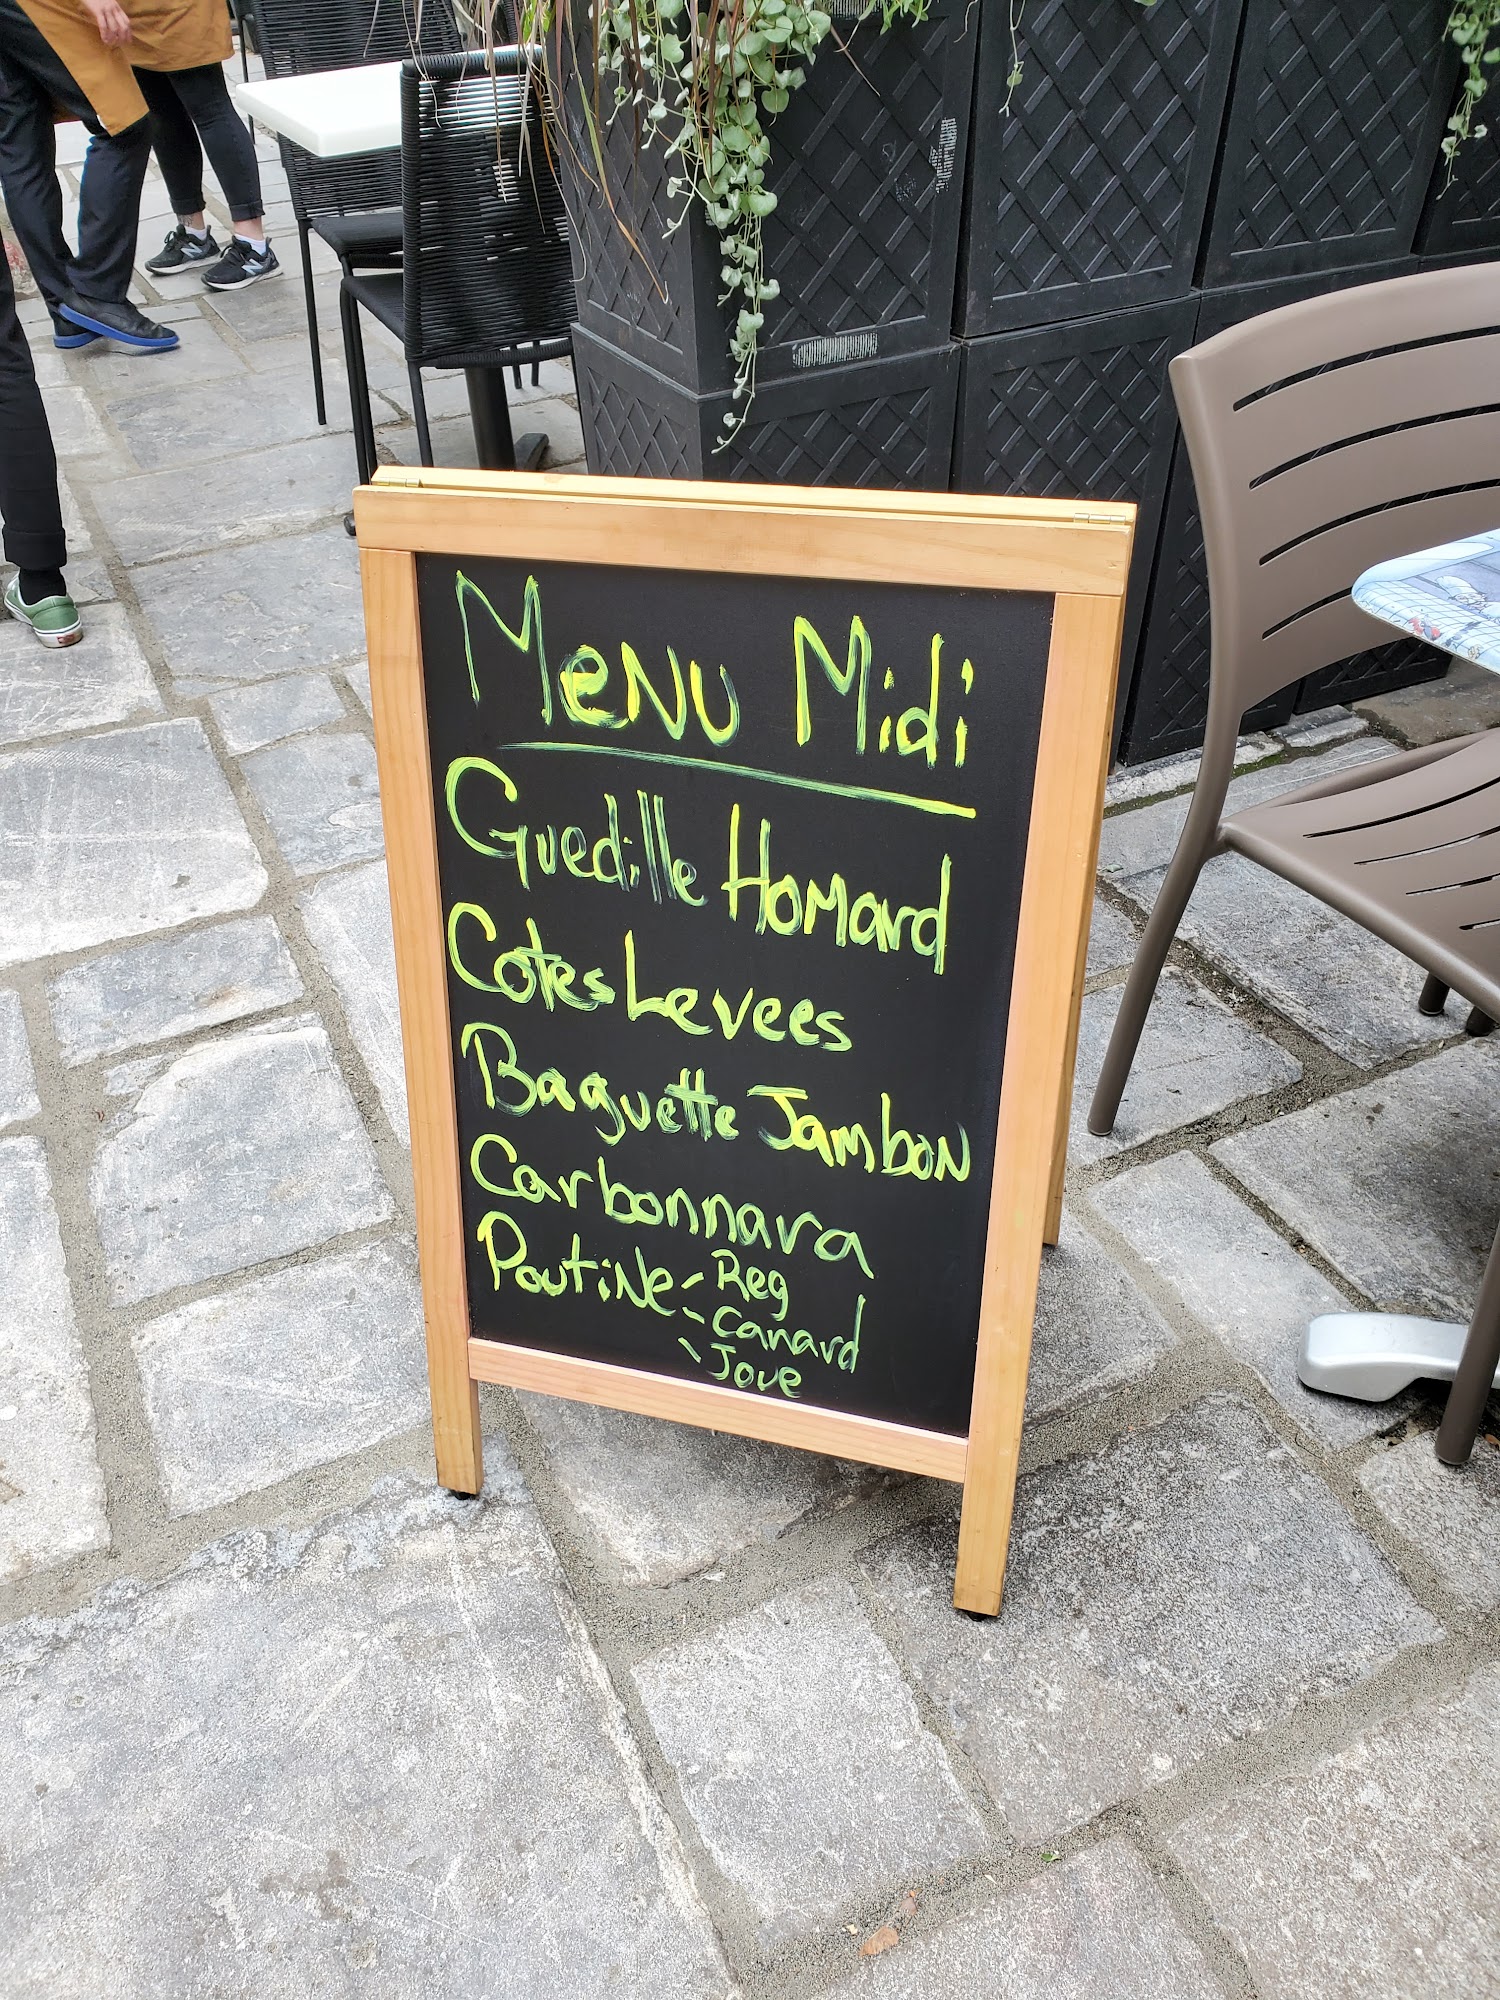 Menu Midi
Guedille Homard
Cotes Levees
Baguette Jambon
Carbonnara
Poutine - Reg
- Canard
- Joue